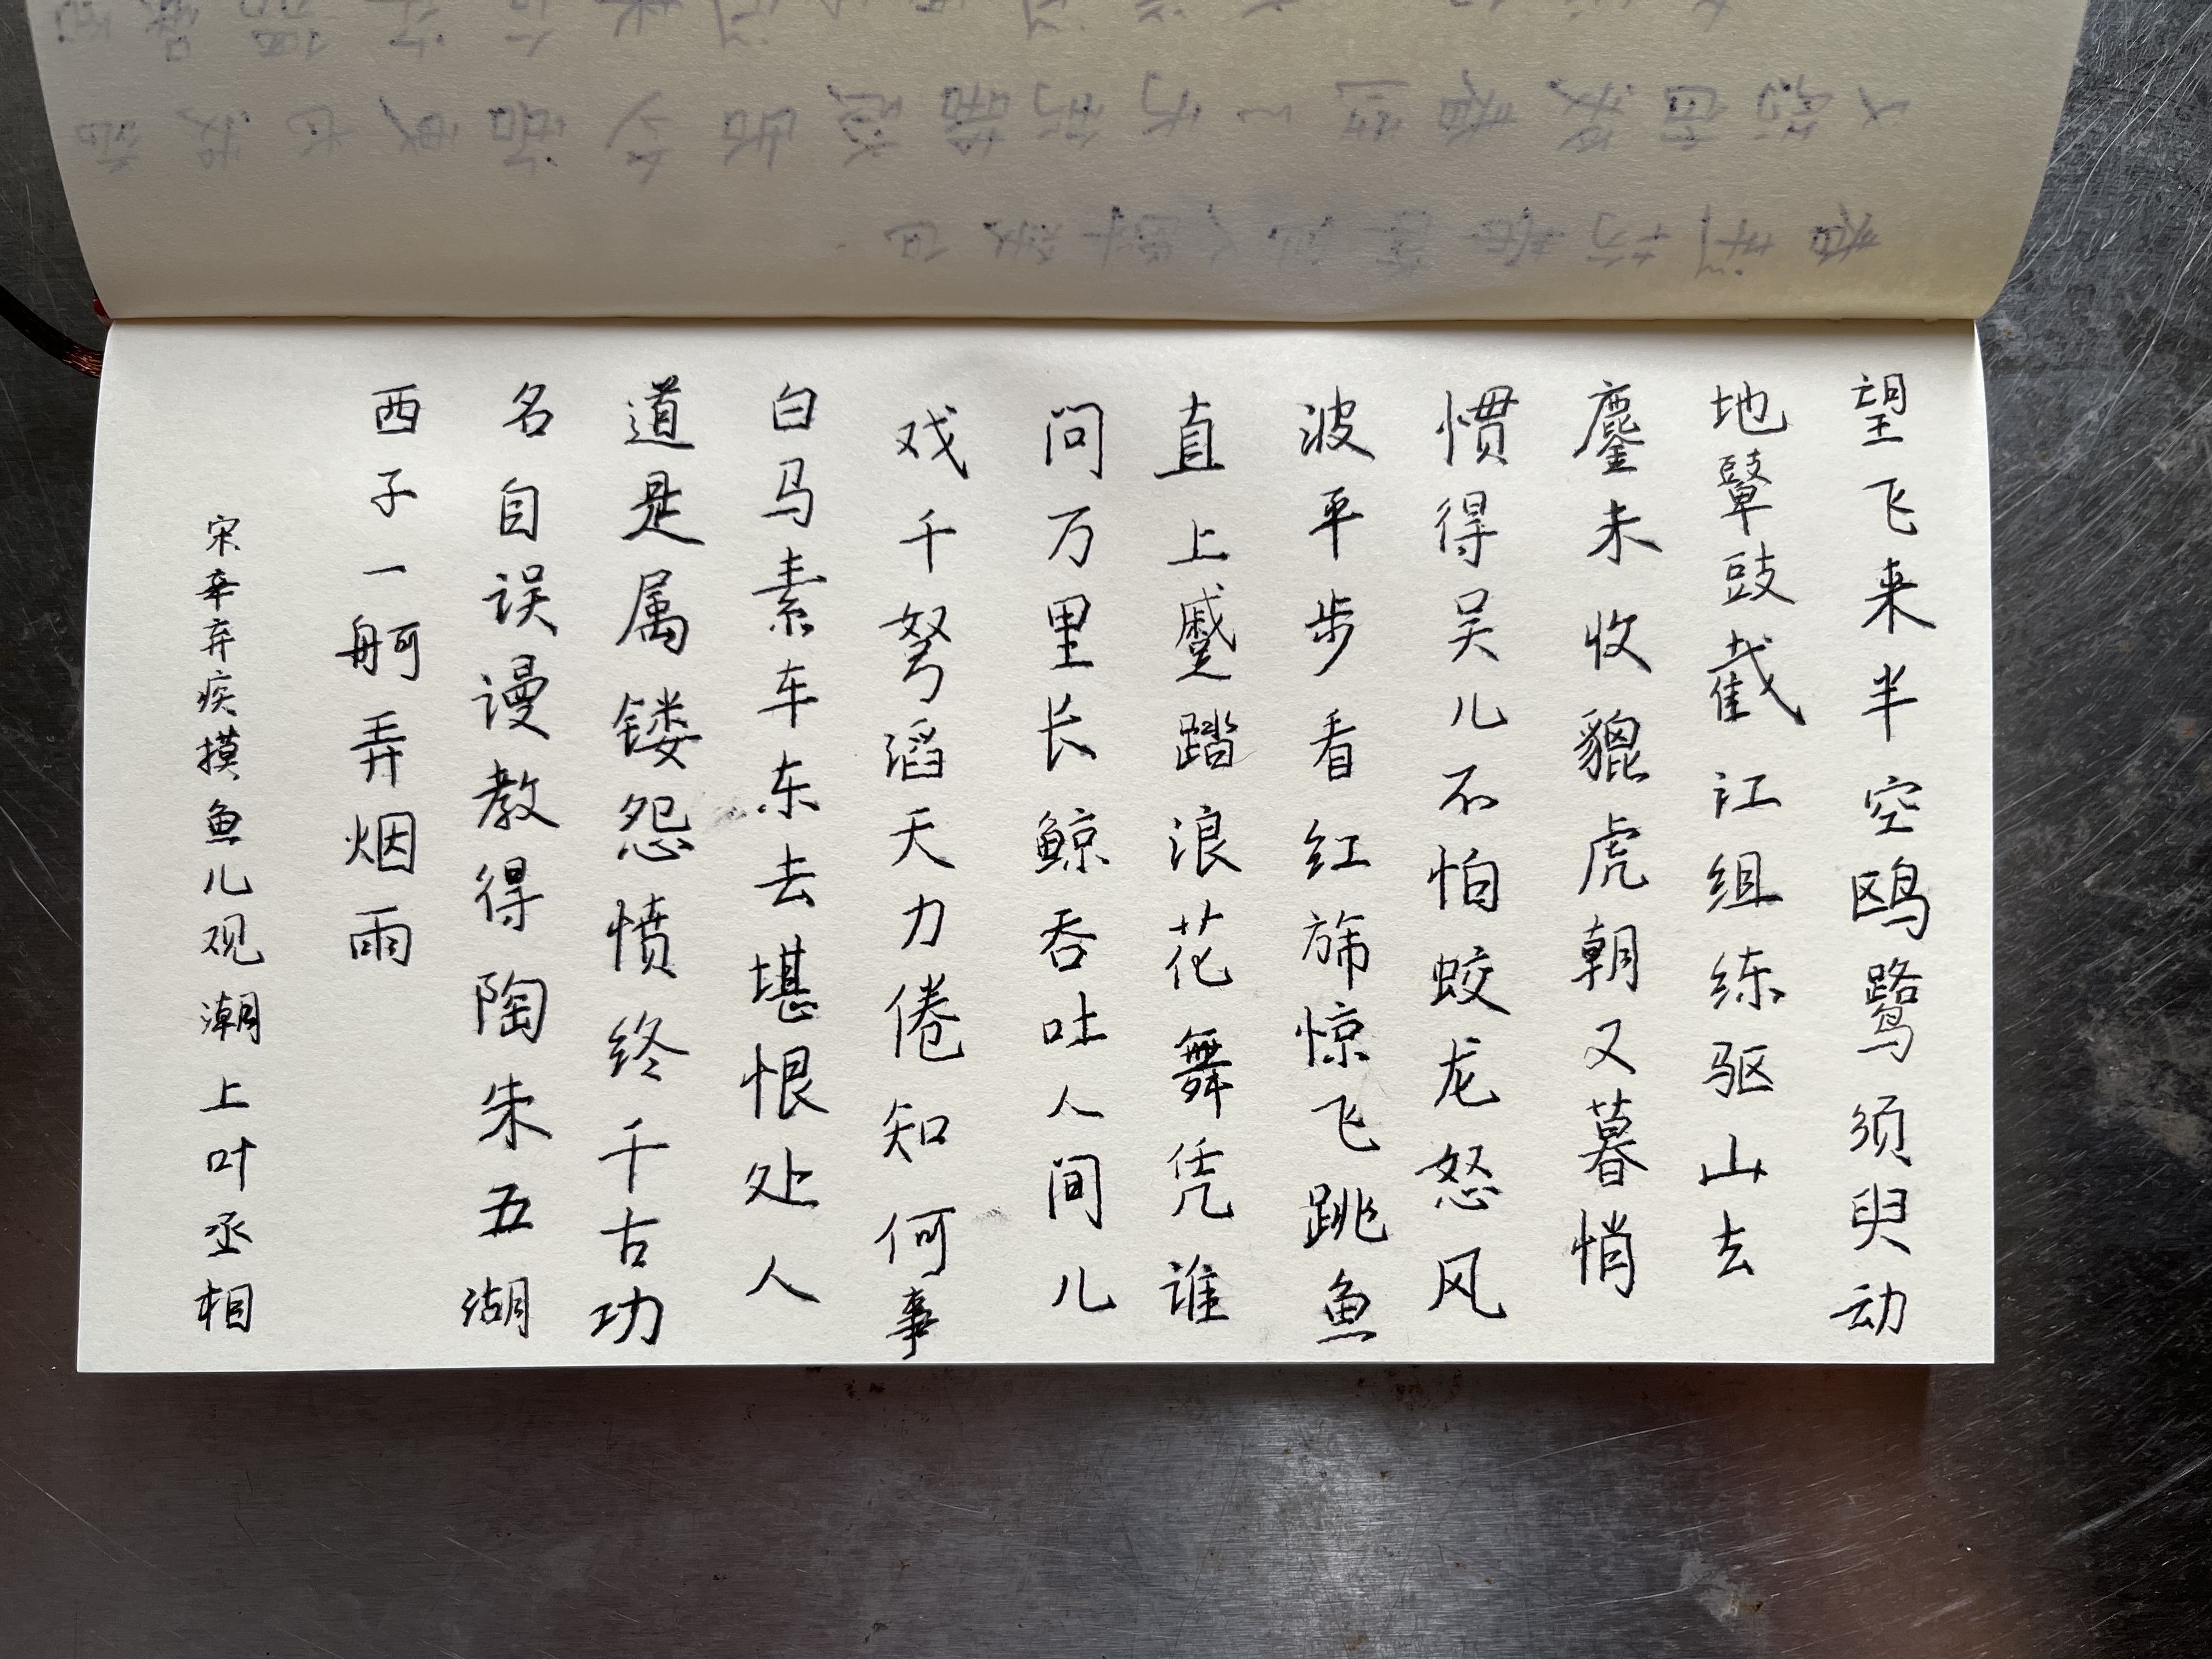 望飞来半空鸥鹭须臾动
地鼙鼓截江组练驱山去
鏖未收貔虎朝又暮悄
惯得吴儿不怕蛟龙怒风
波平步看红旆惊飞跳鱼
直上蹙踏浪花舞凭谁
问万里长鲸吞吐人间儿
戏千弩滔天力倦知何事
白马素车东去堪恨处人
道是属镂怨愤终千古功
名自误谩教得陶朱五湖
西子一舸弄烟雨
宋辛弃疾摸鱼儿观潮上叶丞相